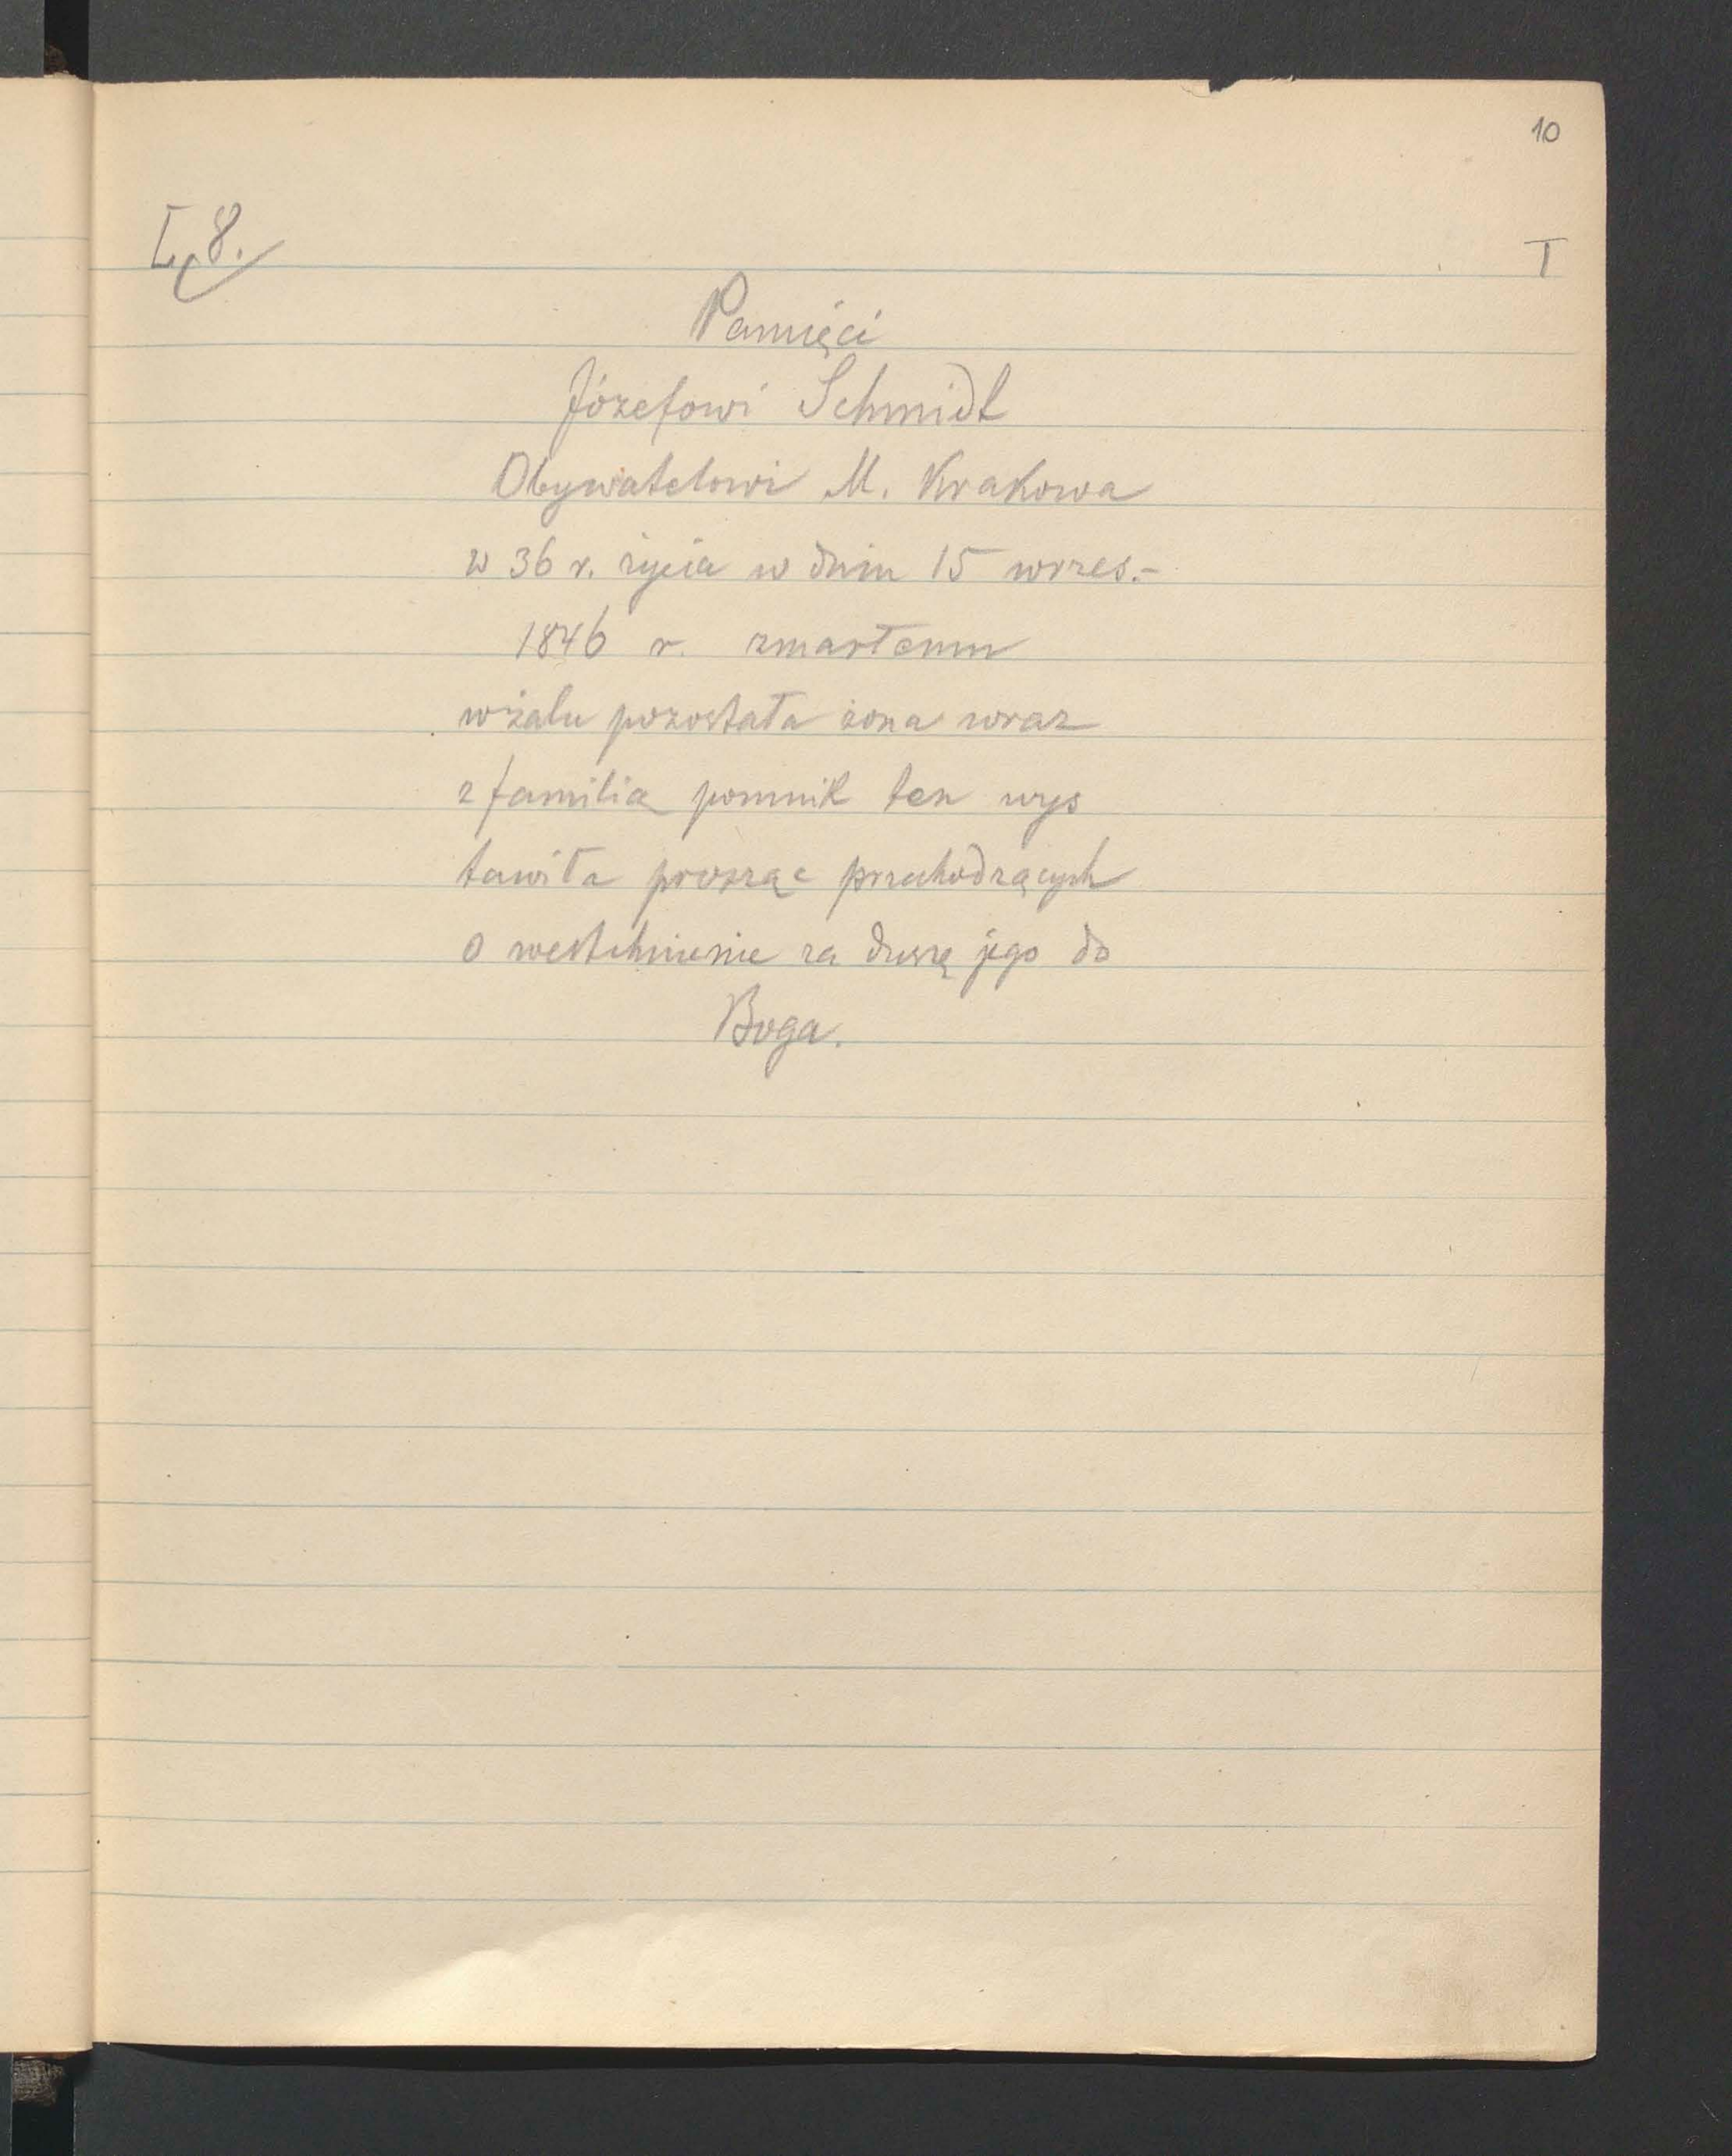 10
L. 8.
I
Pamięci
Józefowi Schmidt
Obywatelowi M. Krakowa
w 36 r. życia w dniu 15 wrzes.-
1846 r. zmarłemu
w żalu pozostała żona wraz
z familią pomnik ten wys
tawiła prosząc przechodzących
o westchnienie za duszę jego do
Boga.